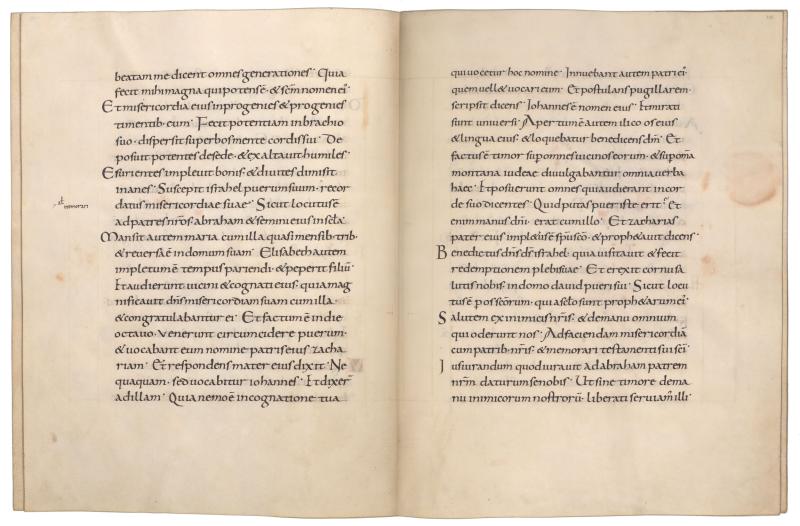 beatam me dicent omnes generationes. Quia
fecit mihi magna qui potens ē. & sc̄m nomen ei'
Et misericordia eius in progenies & progenies
timentib. eum. Fecit potentiam in brachio
suo. dispersit superbos mente cordis sui. De
posuit potentes de sede. & exaltauit humiles.
Esurientes impleuit bonis. & diuites dimisit
inanes. Suscepit israhel puerum suum. recor
datus misericordiae suae. Sicut locutus ē
memorari
ad patres nr̄os. abraham & semini eius in scl̄a.
Mansit autem maria cum illa quasi mensib. trib.
& reuersa ē in domum suam. Elisabeth autem
impletum ē tempus pariendi. & peperit filiū.
Et audierunt uicini & cognati eius. quia mag
nificauit dn̄s misericordiam suam cum illa.
& congratulabantur ei. Et factum ē in die
octauo. uenerunt circumcidere puerum.
& uocabant eum nomine patris eius zacha
riam. Et respondens mater eius dixit. Ne
quaquam. sed uocabitur iohannes. Et dixer̄
ad illam. Quia nemo ē in cognatione tua
qui uocetur hoc nomine. Innuebant autem patri ei'
quem uell& uocari eum. Et postulans pugillarem.
scripsit dicens. Iohannes ē nomen eius. Et mirati
sunt uniuersi. Apertum ē autem ilico os eius
& lingua eius. & loquebatur benedicens dm̄. Et
factus ē timor sup omnes uicinos eorum. & sup om̄a
montana iudeae diuulgabantur omnia uerba
haec. Et posuerunt omnes qui audierant in cor
de suo dicentes. Quid putas puer iste erit? Et
enim manus dn̄i. erat cum illo. Et zacharias
pater eius impl&us ē sp̄u sc̄o. & proph&auit dicens.
Benedictus dn̄s ds̄ israhel. quia uisitauit & fecit
redemptionem plebis suae. Et erexit cornu sa
lutis nobis. in domo dauid pueri sui. Sicut locu
tus ē p os sc̄orum. qui a scl̄o sunt proph&arum ei'
Salutem ex inimicis nr̄is. & de manu omnium
qui oderunt nos. Ad faciendam misericordiā
cum patrib. nr̄is. & memorari testamenti sui sc̄i.
Iusiurandum quod iurauit ad abraham patrem
nr̄m. daturum se nobis. Ut sine timore de ma
nu inimicorum nostrorū. liberati seruiam' illi.